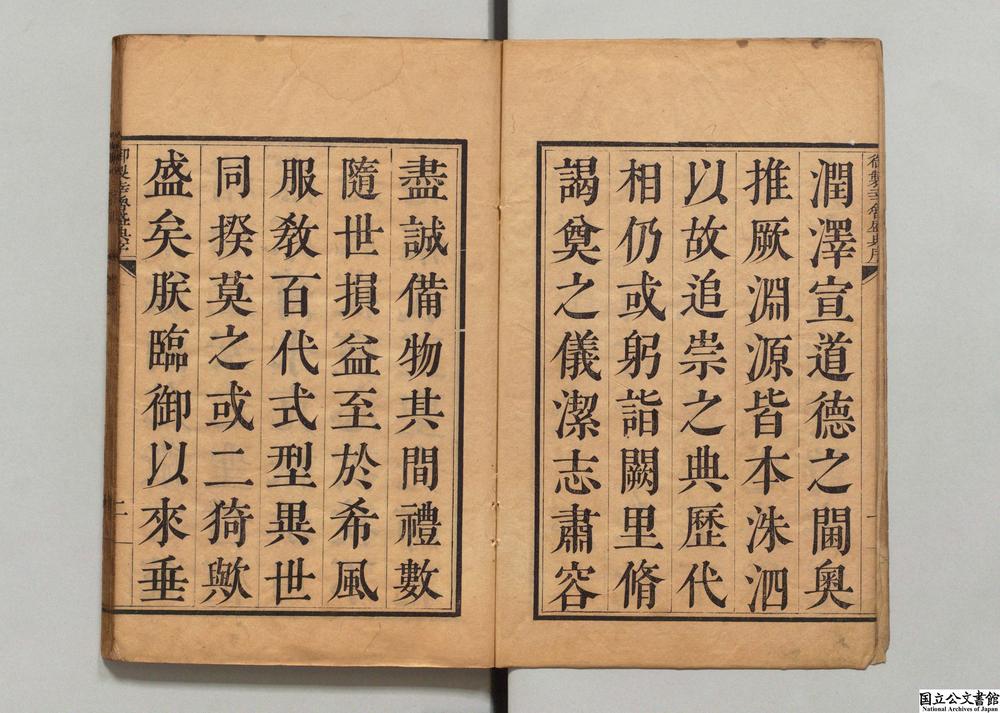 御製幸魯盛典序
潤澤宣道德之閫奧
推厥淵源皆本洙泗
以故追崇之典歷代
相仍或躬詣闕里脩
謁奠之儀潔志肅容
一
盡誠備物其間禮數
隨世損益至於希風
服教百代式型異世
同揆莫之或二猗歟
盛矣朕臨御以來垂
御製幸魯盛典序
二
国立公文書館
National Archives of Japan